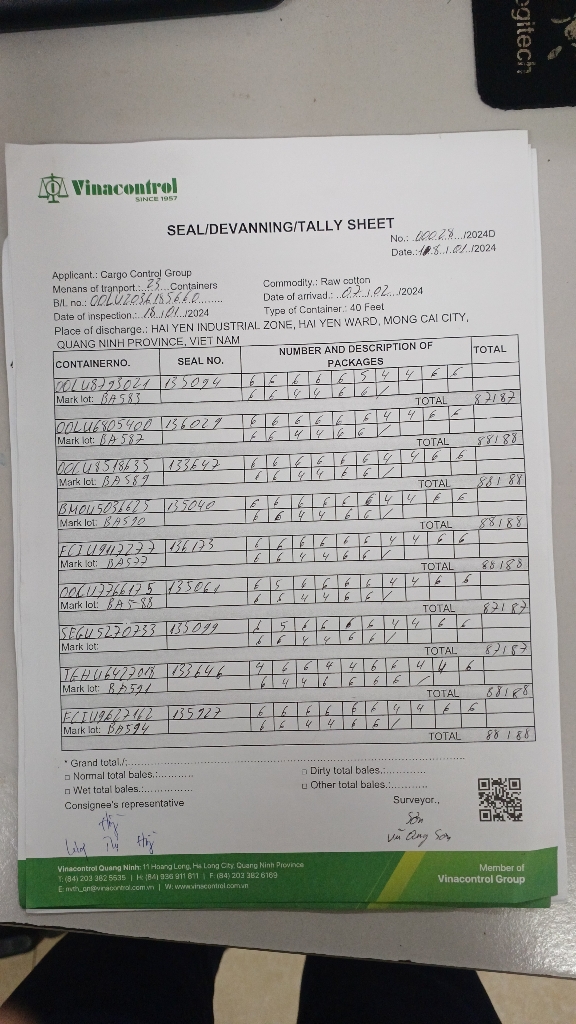 egitech
Vinacontrol
SINCE 1957
SEAL/DEVANNING/TALLY SHEET
No.: 00028 /2024D
Date.: 18 / 01 /2024
Applicant.: Cargo Control Group
Menans of tranport.: 23 Containers
Commodity.: Raw cotton
B/L no.: OOLU2036185660
Date of arrivad.: 07 / 02 /2024
Date of inspection.: 18 / 01 /2024
Type of Container.: 40 Feet
Place of discharge.: HAI YEN INDUSTRIAL ZONE, HAI YEN WARD, MONG CAI CITY,
QUANG NINH PROVINCE, VIET NAM
CONTAINERNO. SEAL NO. NUMBER AND DESCRIPTION OF PACKAGES TOTAL
OOLU8793021 135094 6 6 6 6 6 5 4 4 6 6
Mark lot: BA583 6 6 4 4 6 6 /
TOTAL 87/87
OOLU6805400 136029 6 6 6 6 6 6 4 4 6 6
Mark lot: BA587 6 6 4 4 6 6 /
TOTAL 88/88
OOCU8518635 133647 6 6 6 6 6 6 4 4 6 6
Mark lot: BA589 6 6 4 4 6 6 /
TOTAL 88/88
BMOU5036625 135040 6 6 6 6 6 6 4 4 6 6
Mark lot: BA590 6 6 4 4 6 6 /
TOTAL 88/88
136173 6 6 6 6 6 6 4 4 6 6
Mark lot: BA577 6 6 4 4 6 6 /
TOTAL 88/88
OOCU7766175 135061 6 5 6 6 6 6 4 4 6 6
Mark lot: BA588 6 6 4 4 6 6 /
TOTAL 87/87
SEGU5270733 135099 6 5 6 6 6 6 4 4 6 6
Mark lot: 6 6 4 4 6 6 /
TOTAL 87/87
TGHU6427018 133646 4 6 6 4 4 6 6 4 4 6
Mark lot: BA591 6 4 4 6 6 6 6 /
TOTAL 88/88
FCIU9627162 135927 6 6 6 6 6 6 4 4 6 6
Mark lot: BA594 6 6 4 4 6 6 /
TOTAL 88/88
* Grand total./:
□ Normal total bales.:
□ Dirty total bales.:
□ Wet total bales.:
□ Other total bales.:
Consignee's representative
Surveyor.,
Sơn
Vũ Công Sơn
Vinacontrol Quang Ninh: 11 Hoang Long, Ha Long City, Quang Ninh Province
T: (84) 203 382 5535 | H: (84) 936 911 811 | F: (84) 203 382 6169
E: nvth_qn@vinacontrol.com.vn | W: www.vinacontrol.com.vn
Member of
Vinacontrol Group